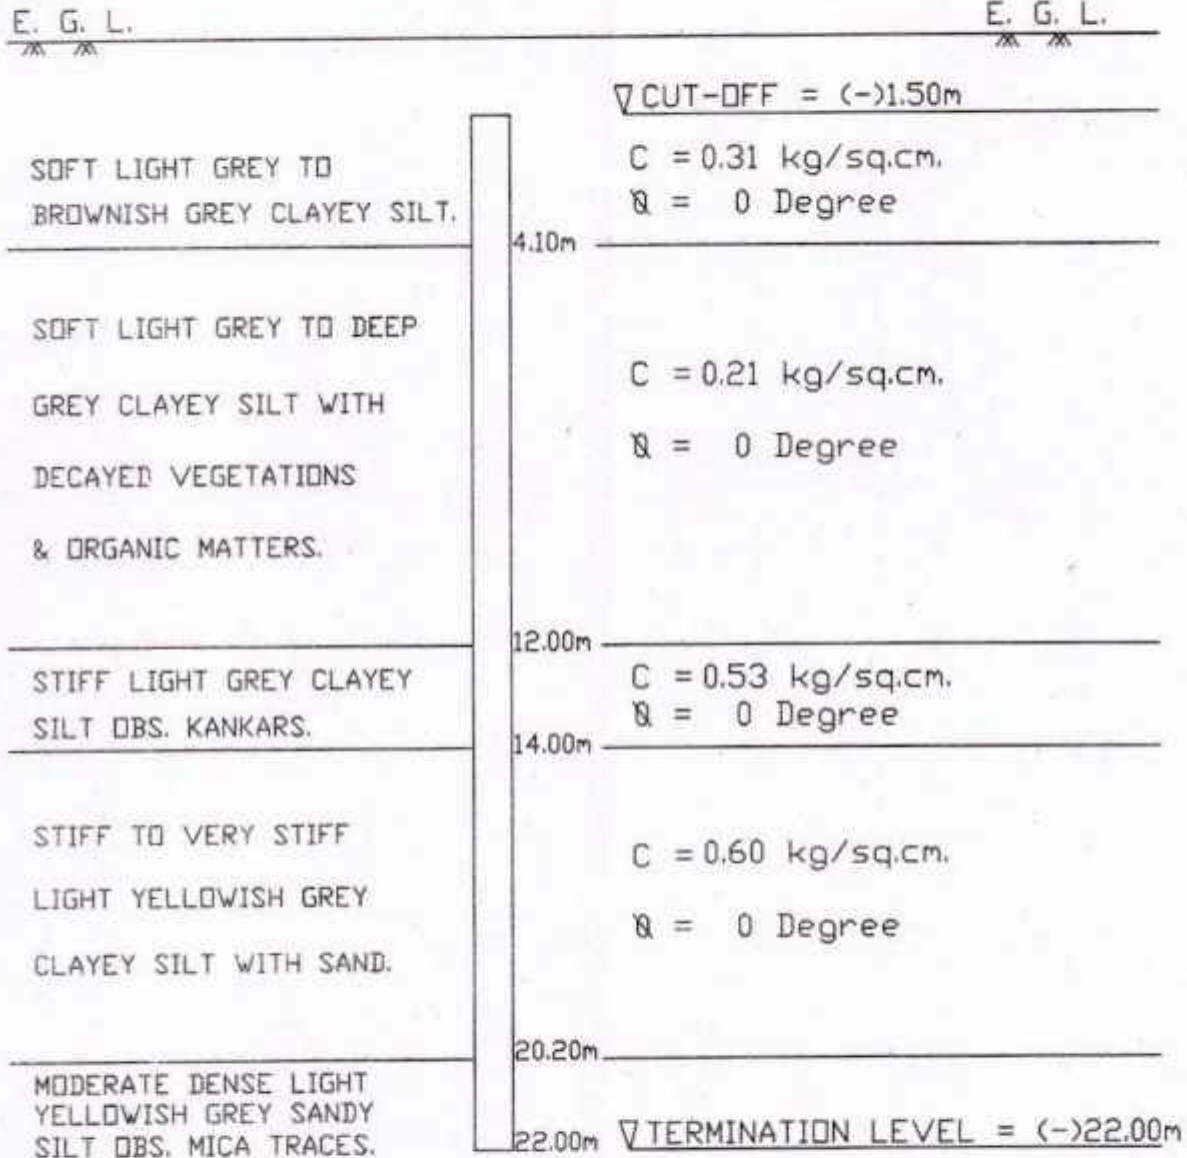 E. G. L.
E. G. L.
CUT-OFF = (-)1.50m
SOFT LIGHT GREY TO
BROWNISH GREY CLAYEY SILT.
C = 0.31 kg/sq.cm.
Ø = 0 Degree
4.10m
SOFT LIGHT GREY TO DEEP
GREY CLAYEY SILT WITH
DECAYED VEGETATIONS
& ORGANIC MATTERS.
C = 0.21 kg/sq.cm.
Ø = 0 Degree
12.00m
STIFF LIGHT GREY CLAYEY
SILT OBS. KANKARS.
C = 0.53 kg/sq.cm.
Ø = 0 Degree
14.00m
STIFF TO VERY STIFF
LIGHT YELLOWISH GREY
CLAYEY SILT WITH SAND.
C = 0.60 kg/sq.cm.
Ø = 0 Degree
20.20m
MODERATE DENSE LIGHT
YELLOWISH GREY SANDY
SILT OBS. MICA TRACES.
22.00m
TERMINATION LEVEL = (-)22.00m